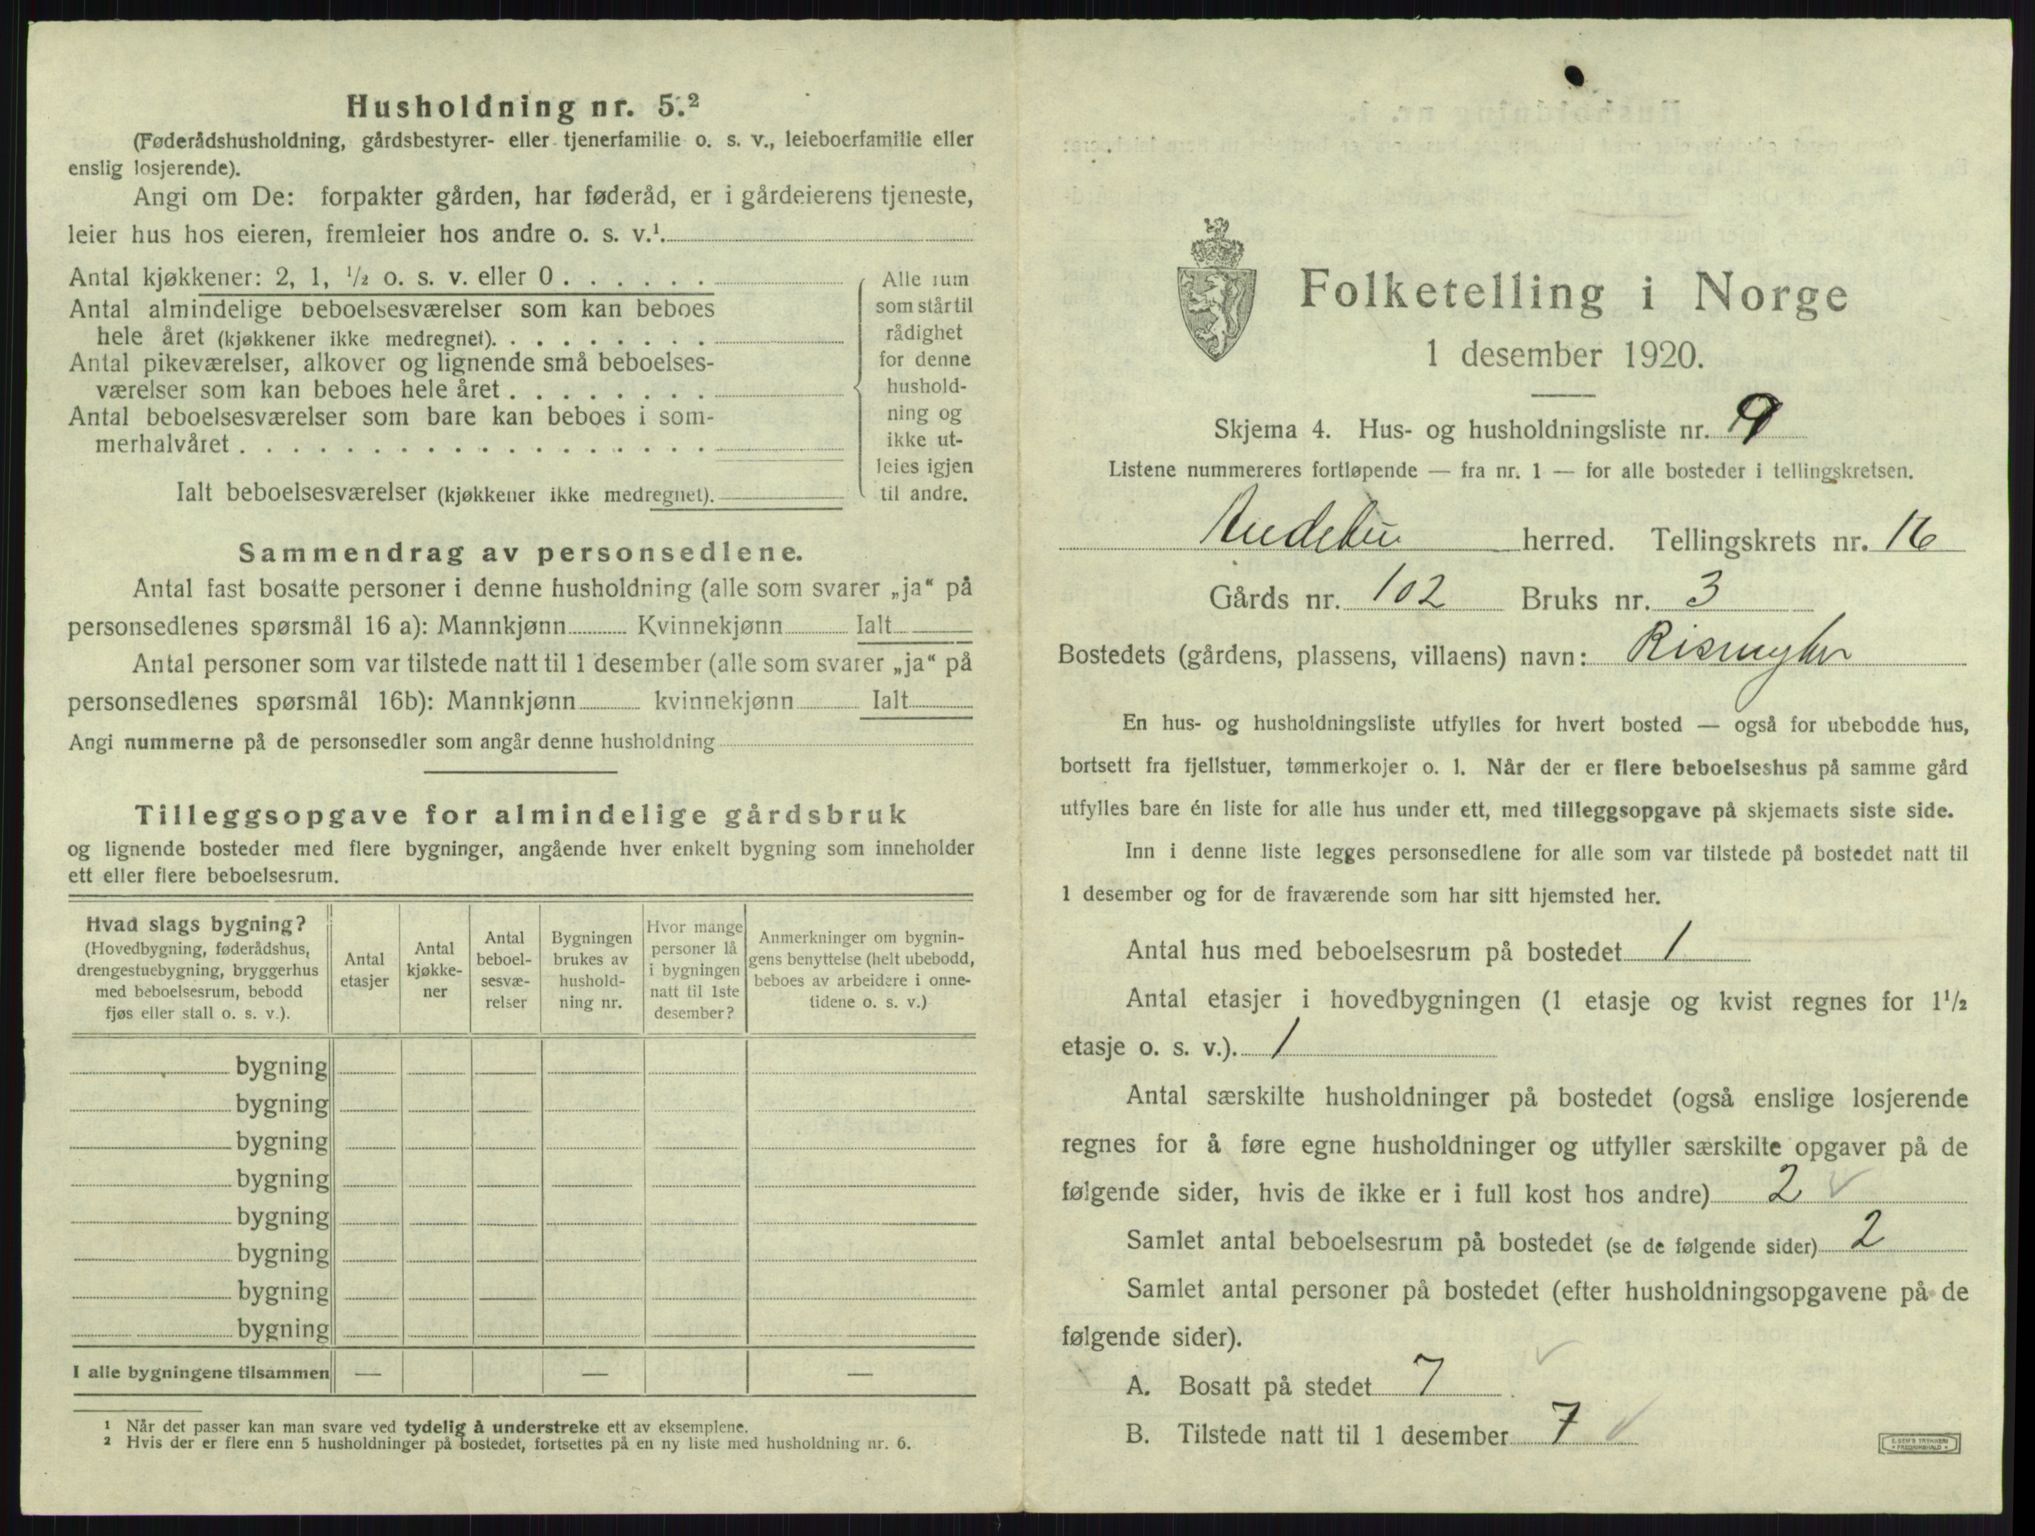 Husholdning nr. 5.²
(Føderådshusholdning, gårdsbestyrer- eller tjenerfamilie o. s. v., leieboerfamilie eller
enslig losjerende).
Angi om De: forpakter gården, har føderåd, er i gårdeierens tjeneste,
leier hus hos eieren, fremleier hos andre o. s. v.¹
Antal kjøkkener: 2, 1, ½ o. s. v. eller 0
Antal almindelige beboelsesværelser som kan beboes
hele året (kjøkkener ikke medregnet).
Antal pikeværelser, alkover og lignende små beboelses-
værelser som kan beboes hele året
Antal beboelsesværelser som bare kan beboes i som-
merhalvåret
Ialt beboelsesværelser (kjøkkener ikke medregnet).
Alle rum
som står til
rådighet
for denne
hushold-
ning og
ikke ut-
leies igjen
til andre.
Sammendrag av personsedlene.
Antal fast bosatte personer i denne husholdning (alle som svarer „ja“ på
personsedlenes spørsmål 16 a): Mannkjønn Kvinnekjønn Ialt
Antal personer som var tilstede natt til 1 desember (alle som svarer „ja“ på
personsedlenes spørsmål 16b): Mannkjønn kvinnekjønn Ialt
Angi nummerne på de personsedler som angår denne husholdning
Tilleggsopgave for almindelige gårdsbruk
og lignende bosteder med flere bygninger, angående hver enkelt bygning som inneholder
ett eller flere beboelsesrum.
Hvad slags bygning?
(Hovedbygning, føderådshus,
drengestuebygning, bryggerhus
med beboelsesrum, bebodd
fjøs eller stall o. s. v.).
Antal
etasjer
Antal
kjøkke-
ner
Antal
beboel-
sesvæ-
relser
Bygningen
brukes av
hushold-
ning nr.
Hvor mange
personer lå
i bygningen
natt til 1ste
desember?
Anmerkninger om bygnin-
gens benyttelse (helt ubebodd,
beboes av arbeidere i onne-
tidene o. s. v.)
bygning
bygning
bygning
bygning
bygning
bygning
bygning
bygning
I alle bygningene tilsammen — — —
¹ Når det passer kan man svare ved tydelig å understreke ett av eksemplene.
² Hvis der er flere enn 5 husholdninger på bostedet, fortsettes på en ny liste med husholdning nr. 6.
Folketelling i Norge
1 desember 1920.
Skjema 4. Hus- og husholdningsliste nr. 9
Listene nummereres fortløpende — fra nr. 1 — for alle bosteder i tellingskretsen.
Andebu herred. Tellingskrets nr. 16
Gårds nr. 102 Bruks nr. 3
Bostedets (gårdens, plassens, villaens) navn: Rismyhr
En hus- og husholdningsliste utfylles for hvert bosted — også for ubebodde hus,
bortsett fra fjellstuer, tømmerkojer o. l. Når der er flere beboelseshus på samme gård
utfylles bare én liste for alle hus under ett, med tilleggsopgave på skjemaets siste side.
Inn i denne liste legges personsedlene for alle som var tilstede på bostedet natt til
1 desember og for de fraværende som har sitt hjemsted her.
Antal hus med beboelsesrum på bostedet 1
Antal etasjer i hovedbygningen (1 etasje og kvist regnes for 1½
etasje o. s. v.). 1
Antal særskilte husholdninger på bostedet (også enslige losjerende
regnes for å føre egne husholdninger og utfyller særskilte opgaver på de
følgende sider, hvis de ikke er i full kost hos andre) 2 ✓
Samlet antal beboelsesrum på bostedet (se de følgende sider) 2
Samlet antal personer på bostedet (efter husholdningsopgavene på de
følgende sider).
A. Bosatt på stedet 7 ✓
B. Tilstede natt til 1 desember 7 ✓
E. SEM'S TRYKKERI
FREDRIKSHALD